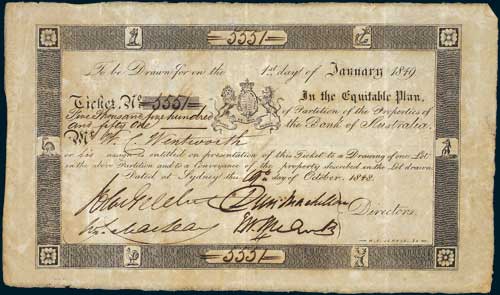 5551
To be Drawn for on the 1st day of January 1849
Ticket, No 5551 In the Equitable Plan,
Five thousand five hundred of Partition of the Properties of
and fifty one the Bank of Australia.
Mr W. C. Wentworth
or his assigns is entitled on presentation of this Ticket to a Drawing of one Lot
in the above Partition and to a Conveyance of the property described in the Lot drawn
Dated at Sydney this day of October. 1848.
Directors.
5551